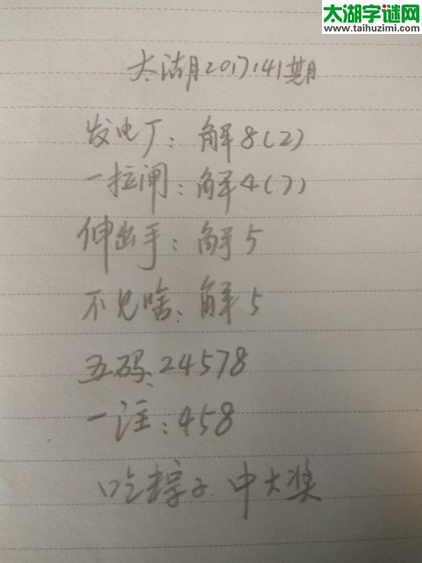 太湖字谜网
www.taihuzimi.com
太湖2017141期
发电厂：解8(2)
一拉闸：解4(7)
伸出手：解5
不见啥：解5
五码：24578
一注：458
吃粽子 中大奖